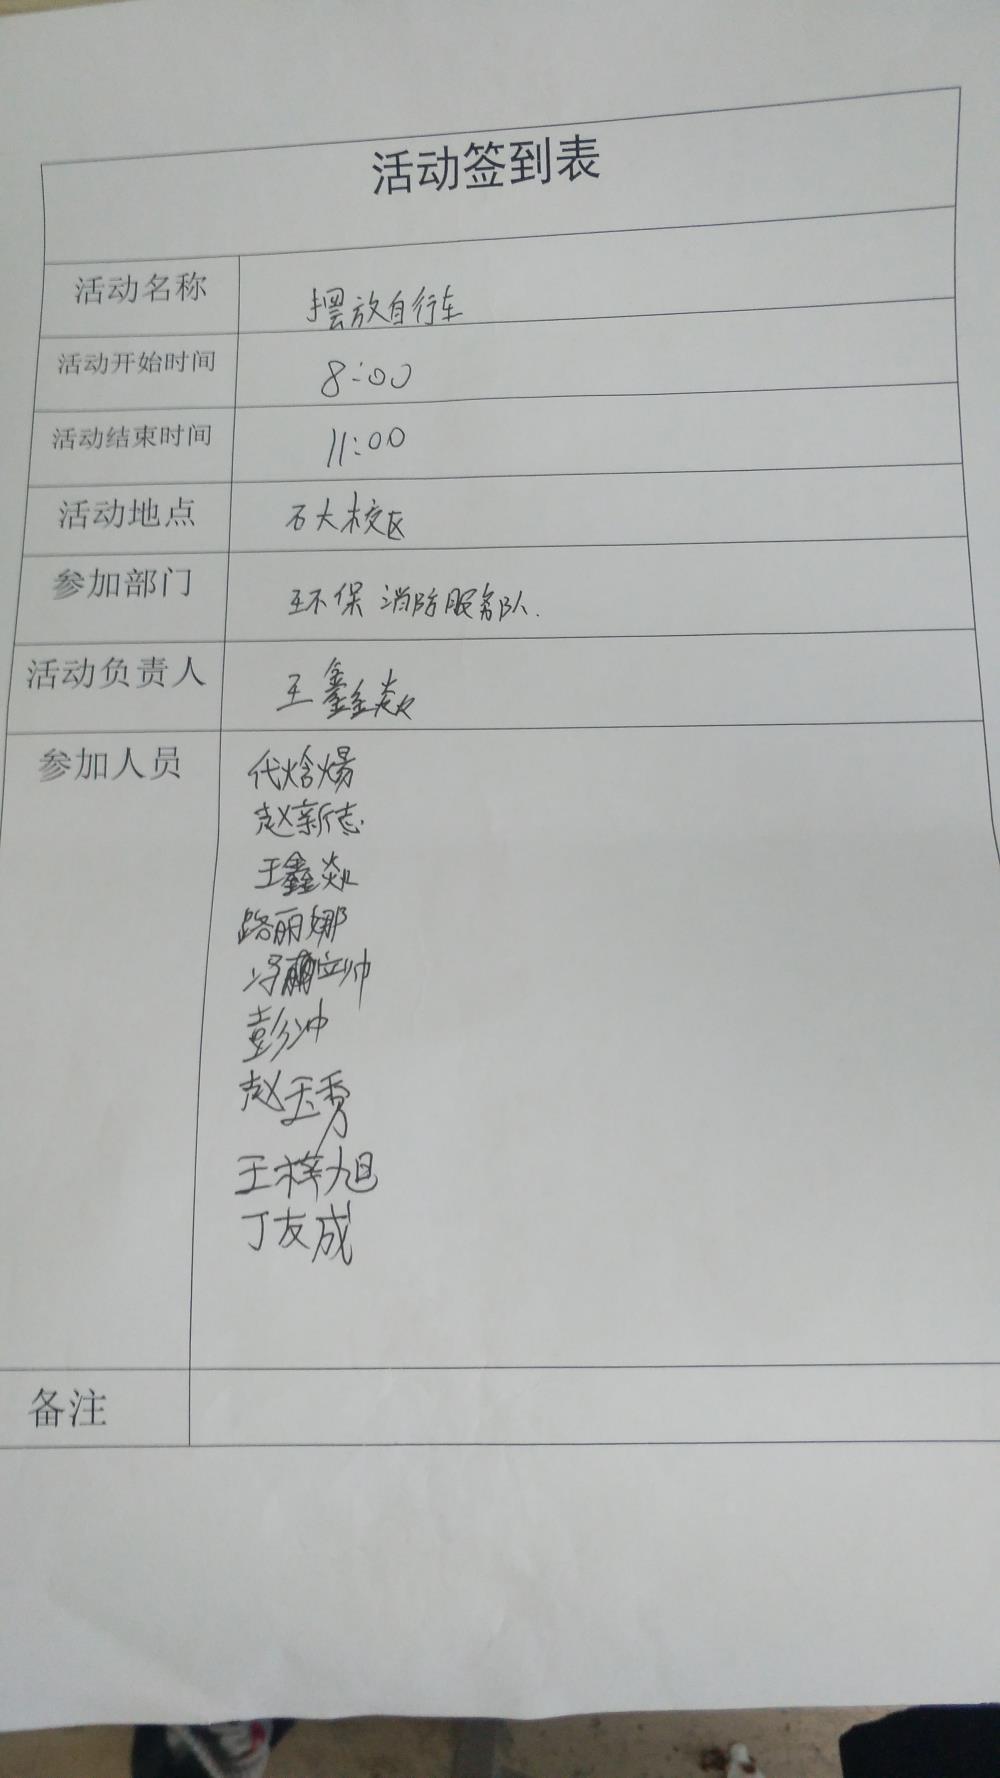 活动签到表
活动名称 摆放自行车
活动开始时间 8:00
活动结束时间 11:00
活动地点 石大校区
参加部门 环保消防服务队.
活动负责人 王鑫焱
参加人员 代焓煬
赵新志
王鑫焱
路丽娜
冯立帅
彭冲
赵玉秀
王梓旭
丁友成
备注